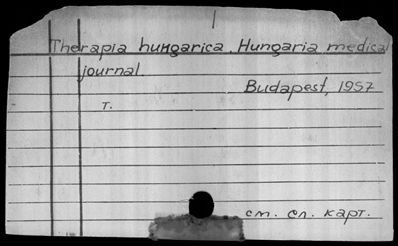 Therapia hungarica. Hungaria medical
journal.
Budapest, 1957
т.
см. сл. карт.